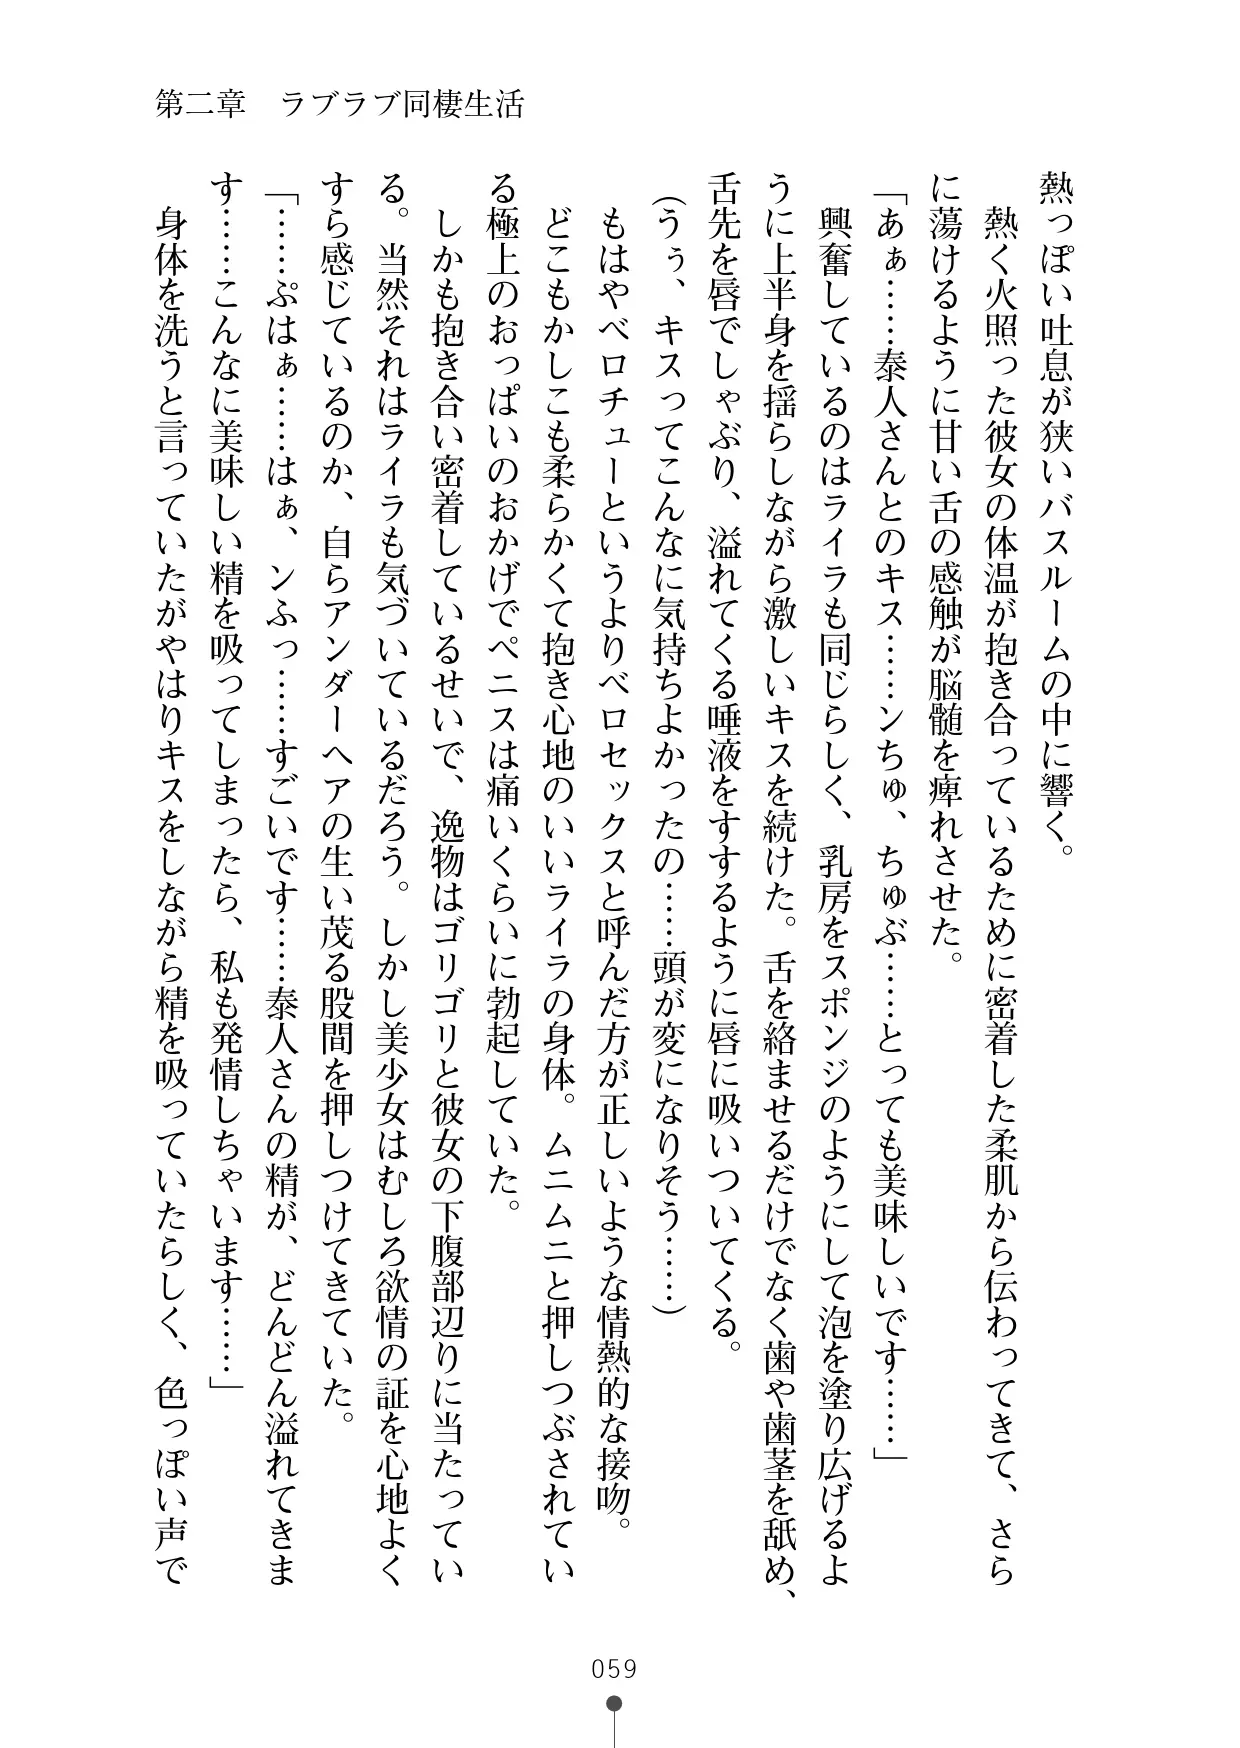 第二章　ラブラブ同棲生活
熱っぽい吐息が狭いバスルームの中に響く。
熱く火照った彼女の体温が抱き合っているために密着した柔肌から伝わってきて、さら
に蕩けるように甘い舌の感触が脳髄を痺れさせた。
「あぁ……泰人さんとのキス……ンちゅ、ちゅぶ……とっても美味しいです……」
興奮しているのはライラも同じらしく、乳房をスポンジのようにして泡を塗り広げるよ
うに上半身を揺らしながら激しいキスを続けた。舌を絡ませるだけでなく歯や歯茎を舐め、
舌先を唇でしゃぶり、溢れてくる唾液をすするように唇に吸いついてくる。
（うぅ、キスってこんなに気持ちよかったの……頭が変になりそう……）
もはやベロチューというよりベロセックスと呼んだ方が正しいような情熱的な接吻。
どこもかしこも柔らかくて抱き心地のいいライラの身体。ムニムニと押しつぶされてい
る極上のおっぱいのおかげでペニスは痛いくらいに勃起していた。
しかも抱き合い密着しているせいで、逸物はゴリゴリと彼女の下腹部辺りに当たってい
る。当然それはライラも気づいているだろう。しかし美少女はむしろ欲情の証を心地よく
すら感じているのか、自らアンダーヘアの生い茂る股間を押しつけてきていた。
「……ぷはぁ……はぁ、ンふっ……すごいです……泰人さんの精が、どんどん溢れてきま
す……こんなに美味しい精を吸ってしまったら、私も発情しちゃいます……」
身体を洗うと言っていたがやはりキスをしながら精を吸っていたらしく、色っぽい声で
059